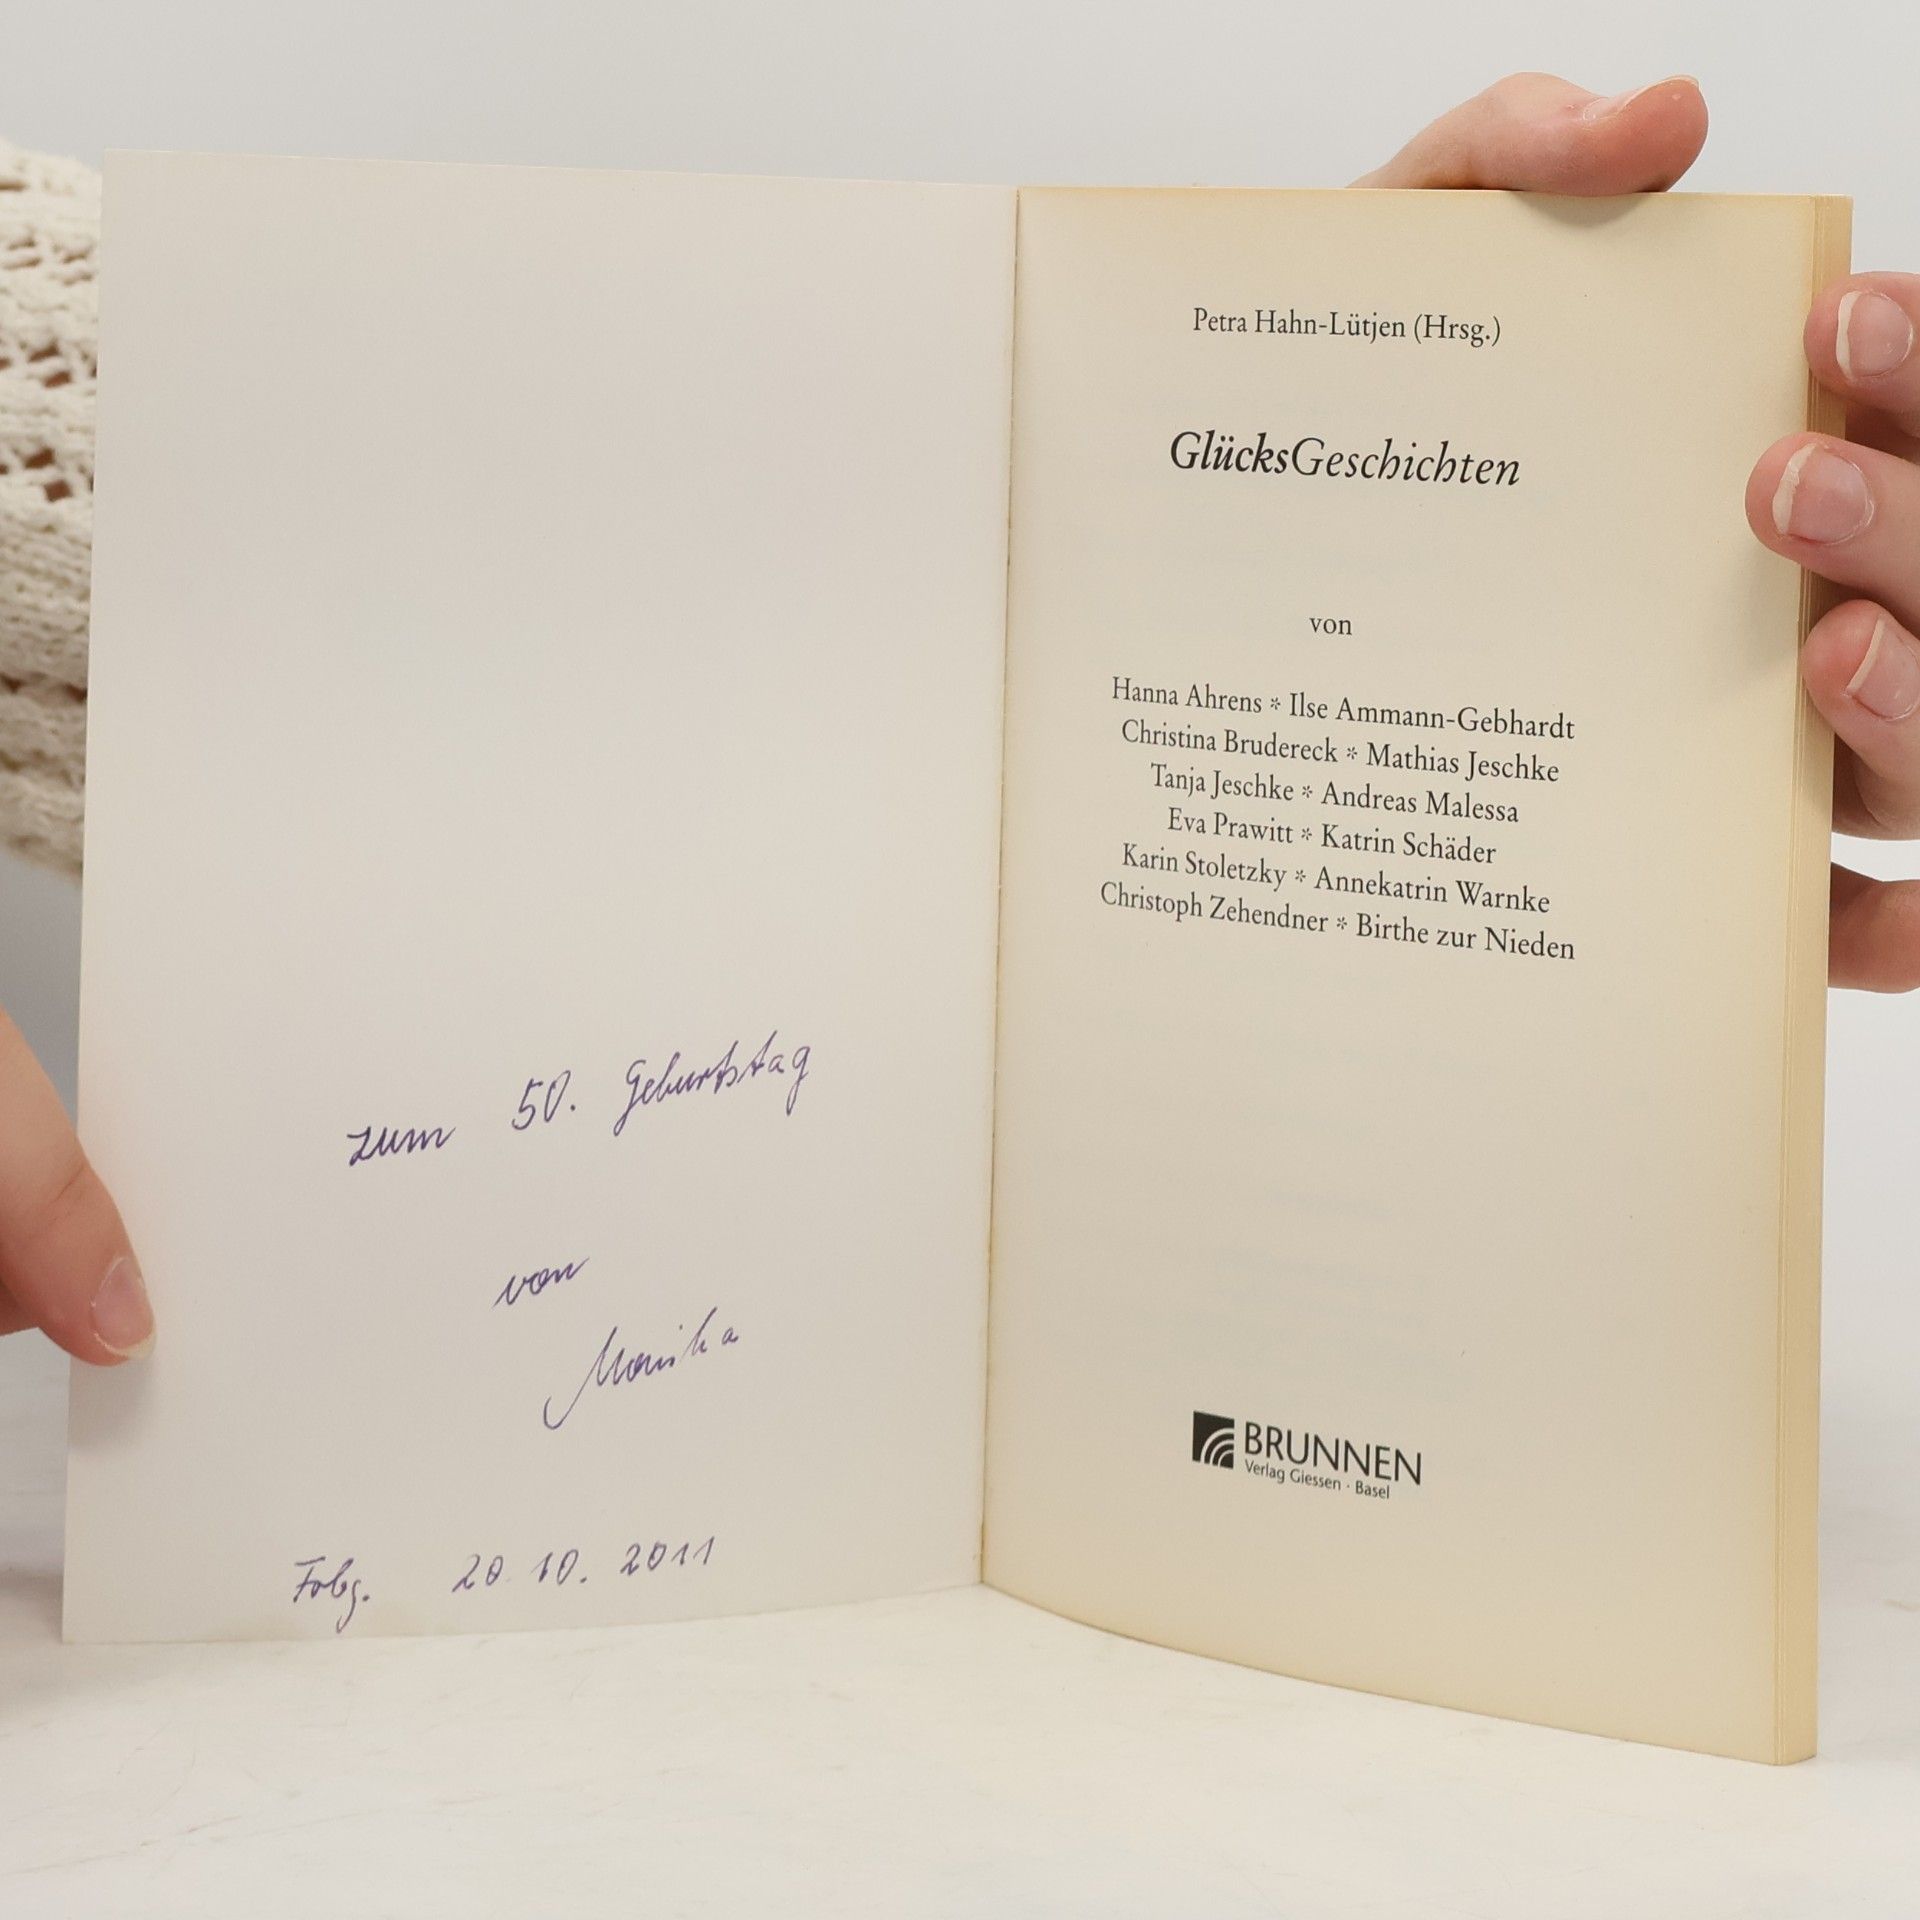 zum 50. Geburtstag
von
Monika
Fbg. 20.10.2011
Petra Hahn-Lütjen (Hrsg.)
GlücksGeschichten
von
Hanna Ahrens * Ilse Ammann-Gebhardt
Christina Brudereck * Mathias Jeschke
Tanja Jeschke * Andreas Malessa
Eva Prawitt * Katrin Schäder
Karin Stoletzky * Annekatrin Warnke
Christoph Zehendner * Birthe zur Nieden
BRUNNEN
Verlag Giessen · Basel